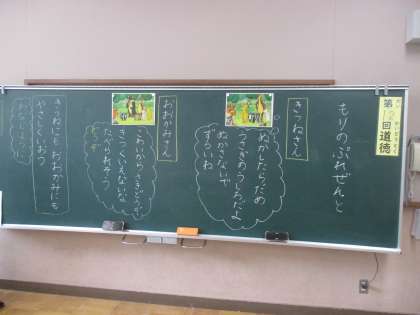 第 回 道徳
もりのぷれぜんと
きつねさん
ぬかしたらだめ
うさぎのうしろだよ
ぬかさないで
ずるいね
おおかみさん
こわいからさきどうぞ
きつくいえないな
たべられそう
きつねにもおおかみにも
やさしくいおう
おなじように